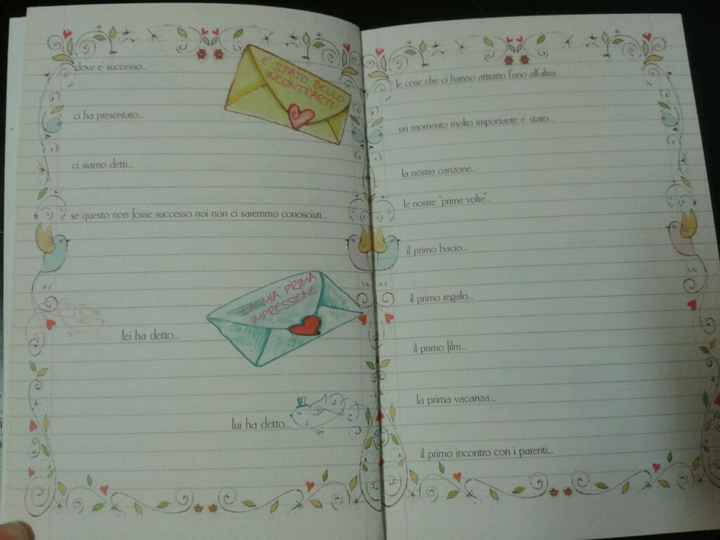 dove è successo...
È STATO BELLO
INCONTRARTI
ci ha presentato...
ci siamo detti...
e se questo non fosse successo noi non ci saremmo conosciuti...
LA MIA PRIMA
IMPRESSIONE
lei ha detto...
lui ha detto...
le cose che ci hanno attratto l'uno all'altra...
un momento molto importante è stato...
la nostra canzone...
le nostre "prime volte"
il primo bacio...
il primo regalo...
il primo film...
la prima vacanza...
il primo incontro con i parenti...